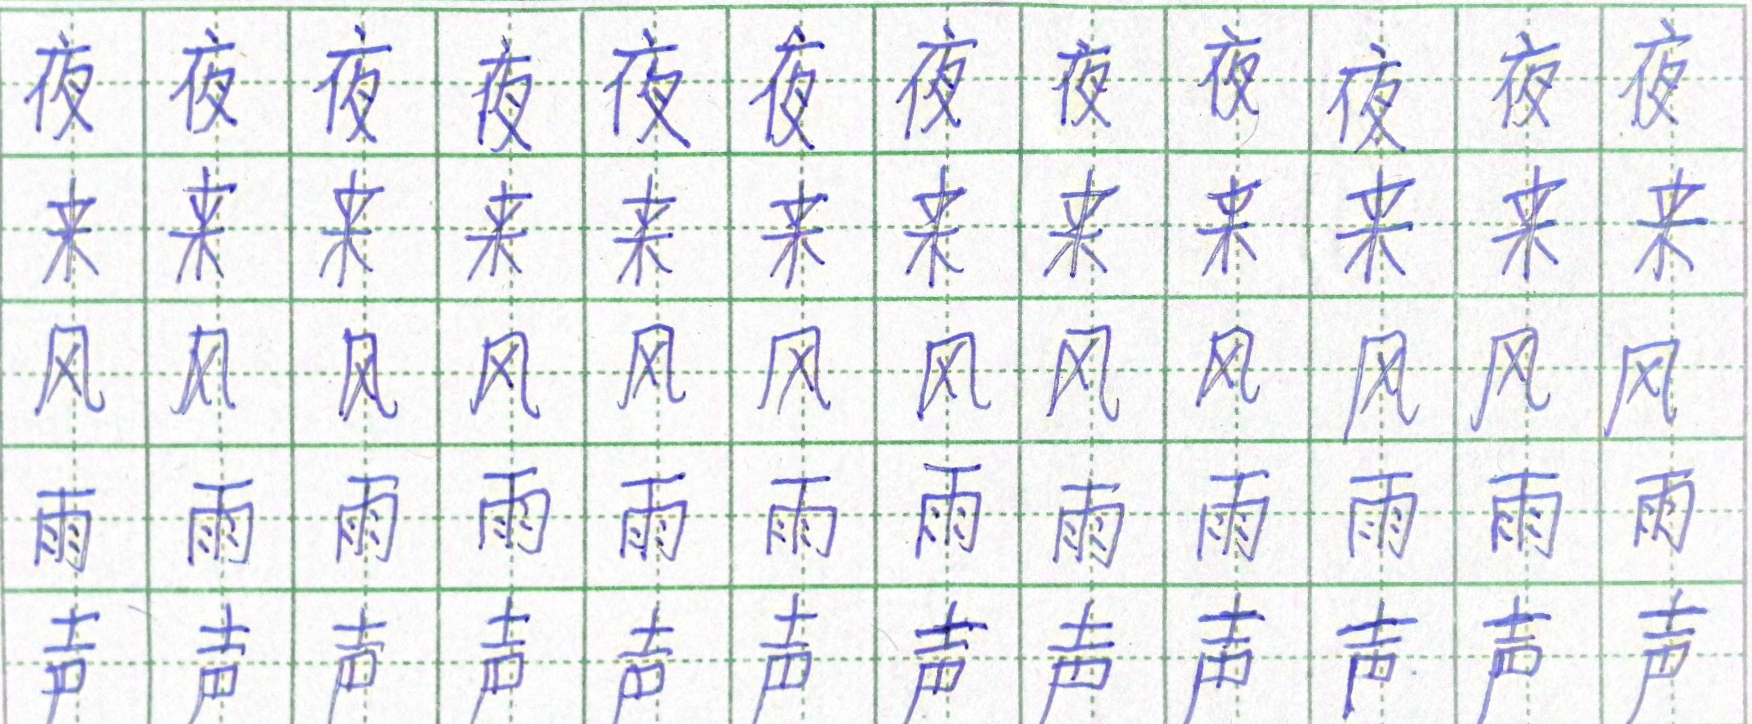 夜夜夜夜夜夜夜夜夜夜夜夜
来来来来来来来来来来来来
风风风风风风风风风风风风
雨雨雨雨雨雨雨雨雨雨雨雨
声声声声声声声声声声声声